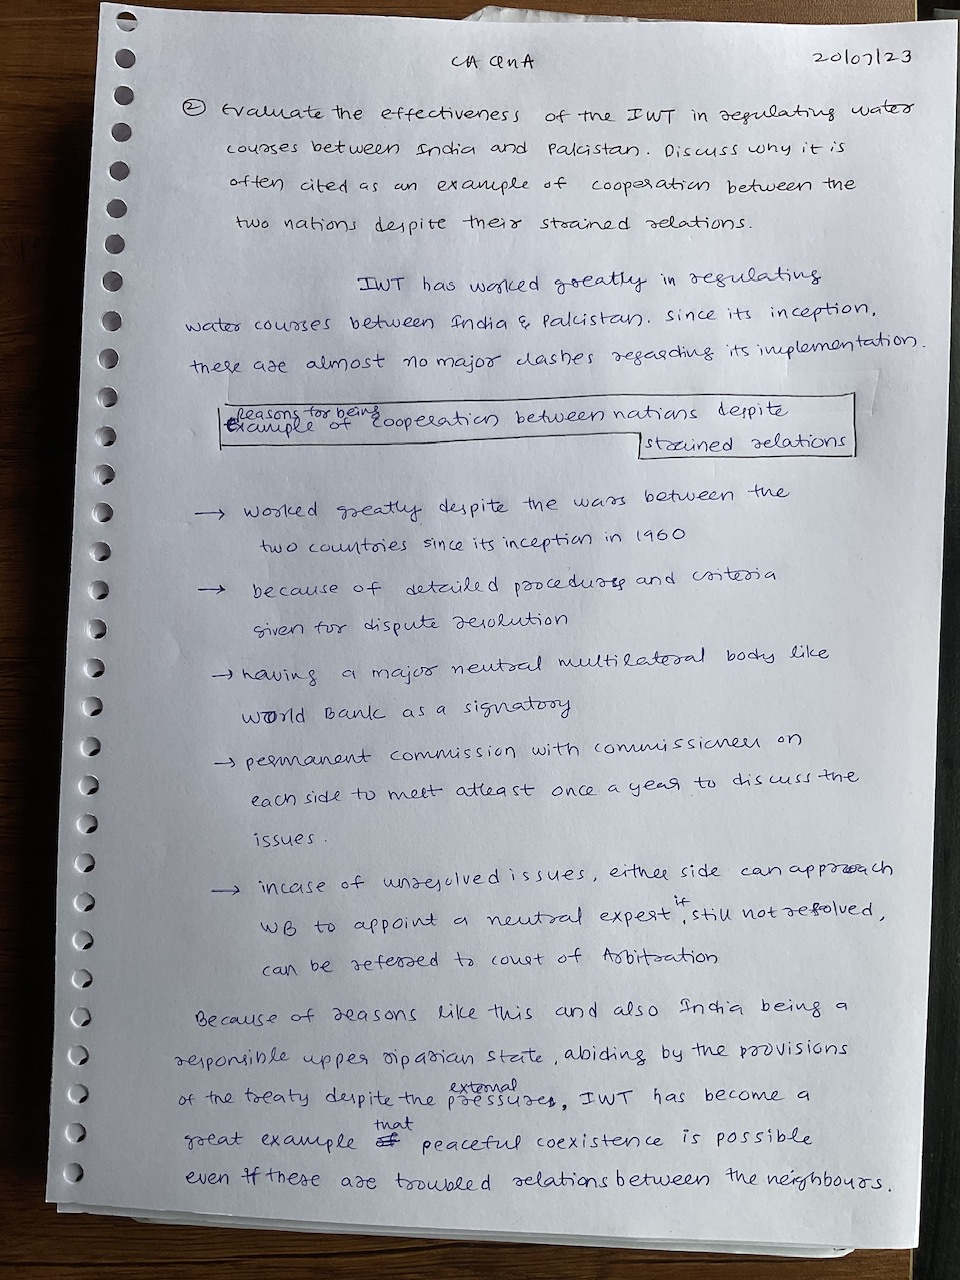 CA QnA 20/07/23
② Evaluate the effectiveness of the IWT in regulating water
courses between India and Pakistan. Discuss why it is
often cited as an example of cooperation between the
two nations despite their strained relations.
IWT has worked greatly in regulating
water courses between India & Pakistan. since its inception,
there are almost no major clashes regarding its implementation.
Reasons for being
example of cooperation between nations despite
strained relations
→ worked greatly despite the wars between the
two countries since its inception in 1960
→ because of detailed procedures and criteria
given for dispute resolution
→ having a major neutral multilateral body like
World Bank as a signatory
→ permanent commission with commissioner on
each side to meet atleast once a year to discuss the
issues.
→ incase of unresolved issues, either side can approach
WB to appoint a neutral expert, if still not resolved,
can be referred to court of Arbitration
Because of reasons like this and also India being a
responsible upper riparian state, abiding by the provisions
of the treaty despite the external pressures, IWT has become a
great example that peaceful coexistence is possible
even if there are troubled relations between the neighbours.